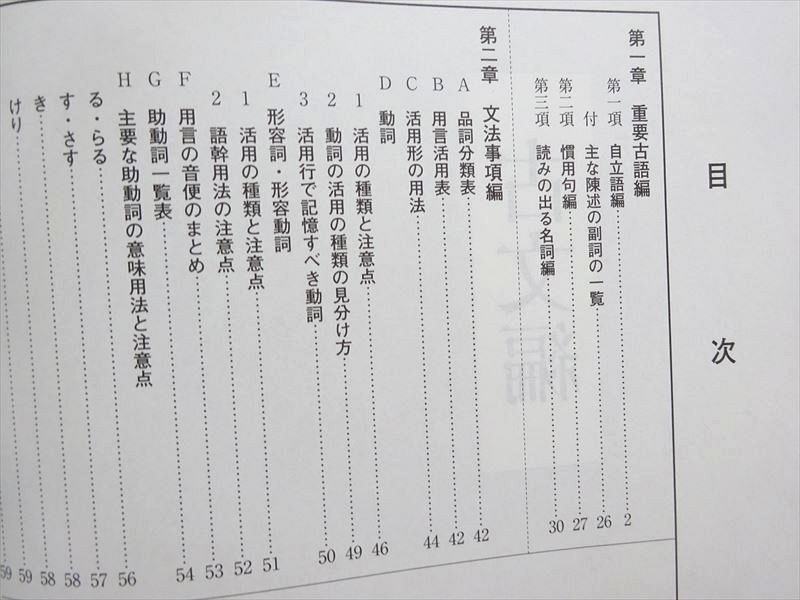 目次
第一章 重要古語編
第一項 自立語編 2
付 主な陳述の副詞の一覧 26
第二項 慣用句編 27
第三項 読みの出る名詞編 30
第二章 文法事項編
A 品詞分類表 42
B 用言活用表 42
C 活用形の用法 44
D 動詞
1 活用の種類と注意点 46
2 動詞の活用の種類の見分け方 49
3 活用行で記憶すべき動詞 50
E 形容詞・形容動詞
1 活用の種類と注意点 51
2 語幹用法の注意点 52
F 用言の音便のまとめ 53
G 助動詞一覧表 54
H 主要な助動詞の意味用法と注意点
る・らる 56
す・さす 57
き 58
けり 58
59
59